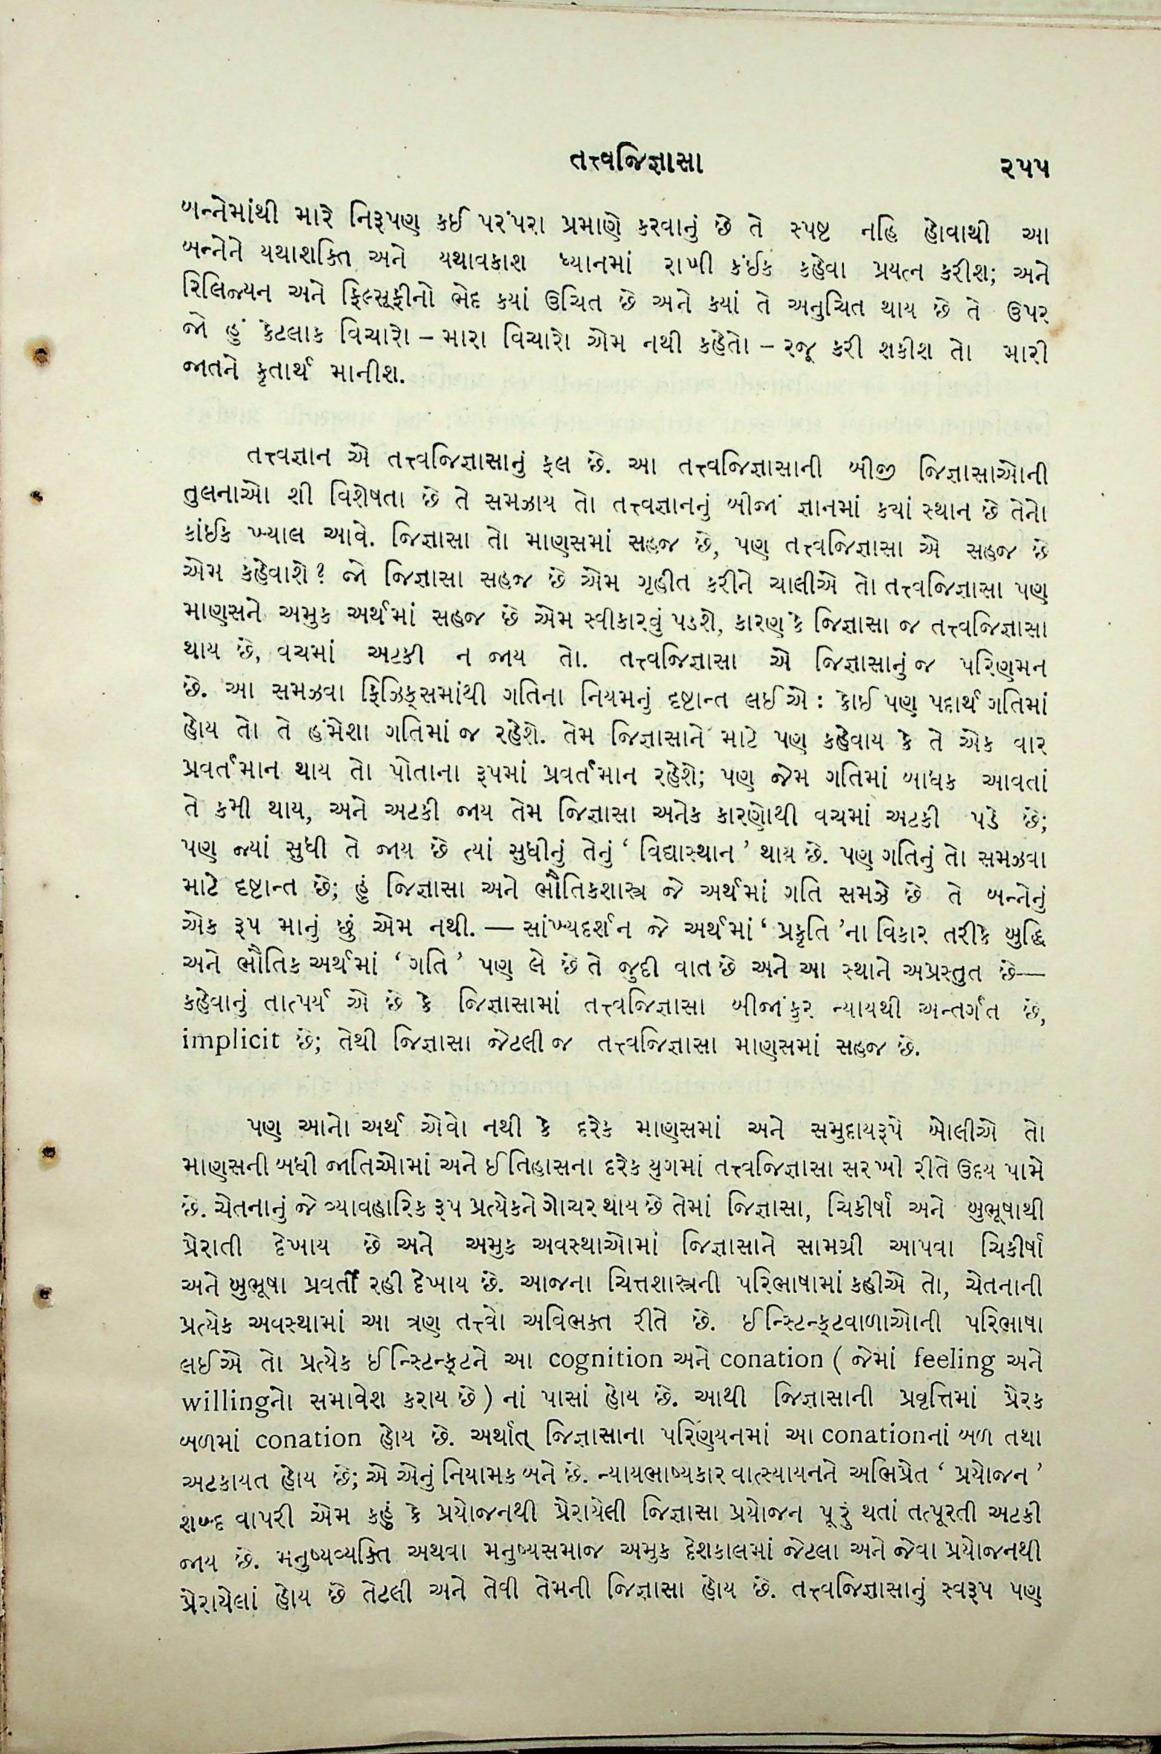 તત્ત્વજિજ્ઞાસા ૨૫૫
બન્નેમાંથી મારે નિરૂપણ કઈ પરંપરા પ્રમાણે કરવાનું છે તે સ્પષ્ટ નહિ હોવાથી આ
બન્નેને યથાશક્તિ અને યથાવકાશ ધ્યાનમાં રાખી કંઈક કહેવા પ્રયત્ન કરીશ; અને
રિલિજ્યન અને ફિલ્સૂફીનો ભેદ કયાં ઉચિત છે અને કયાં તે અનુચિત થાય છે તે ઉપર
જો હું કેટલાક વિચારો – મારા વિચારો એમ નથી કહેતો – રજૂ કરી શકીશ તો મારી
જાતને કૃતાર્થ માનીશ.
તત્ત્વજ્ઞાન એ તત્ત્વજિજ્ઞાસાનું ફલ છે. આ તત્ત્વજિજ્ઞાસાની બીજી જિજ્ઞાસાઓની
તુલનાઓ શી વિશેષતા છે તે સમઝાય તો તત્ત્વજ્ઞાનનું બીજાં જ્ઞાનમાં ક્યાં સ્થાન છે તેનો
કાંઈક ખ્યાલ આવે. જિજ્ઞાસા તો માણસમાં સહજ છે, પણ તત્ત્વજિજ્ઞાસા એ સહજ છે
એમ કહેવાશે? જો જિજ્ઞાસા સહજ છે એમ ગૃહીત કરીને ચાલીએ તો તત્ત્વજિજ્ઞાસા પણ
માણસને અમુક અર્થમાં સહજ છે એમ સ્વીકારવું પડશે, કારણ કે જિજ્ઞાસા જ તત્ત્વજિજ્ઞાસા
થાય છે, વચમાં અટકી ન જાય તો. તત્ત્વજિજ્ઞાસા એ જિજ્ઞાસાનું જ પરિણમન
છે. આ સમઝવા ફિઝિક્સમાંથી ગતિના નિયમનું દૃષ્ટાન્ત લઈએ : કોઈ પણ પદાર્થ ગતિમાં
હોય તો તે હંમેશા ગતિમાં જ રહેશે. તેમ જિજ્ઞાસાને માટે પણ કહેવાય કે તે એક વાર
પ્રવર્તમાન થાય તો પોતાના રૂપમાં પ્રવર્તમાન રહેશે; પણ જેમ ગતિમાં બાધક આવતાં
તે કમી થાય, અને અટકી જાય તેમ જિજ્ઞાસા અનેક કારણોથી વચમાં અટકી પડે છે;
પણ જ્યાં સુધી તે જાય છે ત્યાં સુધીનું તેનું ‘ વિદ્યાસ્થાન ’ થાય છે. પણ ગતિનું તો સમઝવા
માટે દૃષ્ટાન્ત છે; હું જિજ્ઞાસા અને ભૌતિકશાસ્ત્ર જે અર્થમાં ગતિ સમઝે છે તે બન્નેનું
એક રૂપ માનું છું એમ નથી. — સાંખ્યદર્શન જે અર્થમાં ‘ પ્રકૃતિ ’ના વિકાર તરીકે બુદ્ધિ
અને ભૌતિક અર્થમાં ‘ ગતિ ’ પણ લે છે તે જુદી વાત છે અને આ સ્થાને અપ્રસ્તુત છે—
કહેવાનું તાત્પર્ય એ છે કે જિજ્ઞાસામાં તત્ત્વજિજ્ઞાસા બીજાંકુર ન્યાયથી અન્તર્ગત છે,
implicit છે; તેથી જિજ્ઞાસા જેટલી જ તત્ત્વજિજ્ઞાસા માણસમાં સહજ છે.
પણ આનો અર્થ એવો નથી કે દરેક માણસમાં અને સમુદાયરૂપે બોલીએ તો
માણસની બધી જાતિઓમાં અને ઈતિહાસના દરેક યુગમાં તત્ત્વજિજ્ઞાસા સરખી રીતે ઉદય પામે
છે. ચેતનાનું જે વ્યાવહારિક રૂપ પ્રત્યેકને ગોચર થાય છે તેમાં જિજ્ઞાસા, ચિકીર્ષા અને બુભૂષાથી
પ્રેરાતી દેખાય છે અને અમુક અવસ્થાઓમાં જિજ્ઞાસાને સામગ્રી આપવા ચિકીર્ષા
અને બુભૂષા પ્રવર્તી રહી દેખાય છે. આજના ચિત્તશાસ્ત્રની પરિભાષામાં કહીએ તો, ચેતનાની
પ્રત્યેક અવસ્થામાં આ ત્રણ તત્ત્વો અવિભક્ત રીતે છે. ઈન્સ્ટિન્ક્ટવાળાઓની પરિભાષા
લઈએ તો પ્રત્યેક ઈન્સ્ટિન્ક્ટને આ cognition અને conation ( જેમાં feeling અને
willingનો સમાવેશ કરાય છે ) નાં પાસાં હોય છે. આથી જિજ્ઞાસાની પ્રવૃત્તિમાં પ્રેરક
બળમાં conation હોય છે. અર્થાત્ જિજ્ઞાસાના પરિણયનમાં આ conationનાં બળ તથા
અટકાયત હોય છે; એ એનું નિયામક બને છે. ન્યાયભાષ્યકાર વાત્સ્યાયનને અભિપ્રેત ‘ પ્રયોજન ’
શબ્દ વાપરી એમ કહું કે પ્રયોજનથી પ્રેરાયેલી જિજ્ઞાસા પ્રયોજન પૂરું થતાં તત્પૂરતી અટકી
જાય છે. મનુષ્યવ્યક્તિ અથવા મનુષ્યસમાજ અમુક દેશકાલમાં જેટલા અને જેવા પ્રયોજનથી
પ્રેરાયેલાં હોય છે તેટલી અને તેવી તેમની જિજ્ઞાસા હોય છે. તત્ત્વજિજ્ઞાસાનું સ્વરૂપ પણ